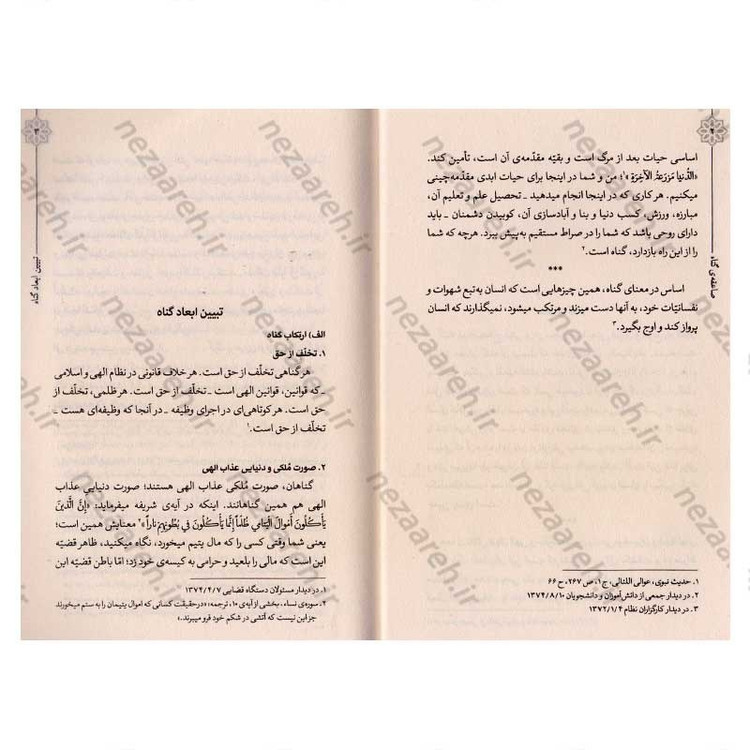 ۲
صاعقه‌ی گناه
اساسی حیات بعد از مرگ است و بقیّه مقدّمه‌ی آن است، تأمین کند.
«الدُّنیا مَزرَعَةُ الآخِرَة»؛۱ من و شما در اینجا برای حیات ابدی مقدّمه‌چینی
میکنیم. هر کاری که در اینجا انجام میدهید ـ تحصیل علم و تعلیم آن،
مبارزه، ورزش، کسب دنیا و بنا و آبادسازی آن، کوبیدن دشمنان ـ باید
دارای روحی باشد که شما را در صراط مستقیم به‌پیش ببرد. هرچه که شما
را از این راه بازدارد، گناه است.۲
***
اساس در معنای گناه، همین چیزهایی است که انسان به‌تبع شهوات و
نفسانیّات خود، به آنها دست میزند و مرتکب میشود، نمیگذارند که انسان
پرواز کند و اوج بگیرد.۳
۱. حدیث نبوی، عوالی اللئالی، ج ۱، ص ۲۶۷، ح ۶۶
۲. در دیدار جمعی از دانش‌آموزان و دانشجویان ۱۳۷۴/۸/۱۰
۳. در دیدار کارگزاران نظام ۱۳۷۲/۱/۴
۳
تبیین ابعاد گناه
تبیین ابعاد گناه
الف) ارتکاب گناه
۱. تخلّف از حق
هر گناهی تخلّف از حق است. هر خلاف قانونی در نظام الهی و اسلامی
ـ که قوانین، قوانین الهی است ـ تخلّف از حق است. هر ظلمی، تخلّف از
حق است. هر کوتاهی‌ای در اجرای وظیفه ـ در آنجا که وظیفه‌ای هست ـ
تخلّف از حق است.۱
۲. صورت مُلکی و دنیایی عذاب الهی
گناهان، صورت مُلکی عذاب الهی هستند؛ صورت دنیایی عذاب
الهی هم همین گناهانند. اینکه در آیه‌ی شریفه میفرماید: «إِنَّ الَّذينَ
يَأكُلُونَ أَموالَ اليَتامى ظُلماً إِنَّما يَأكُلُونَ في بُطُونِهِم ناراً»۲ معنایش همین است؛
یعنی شما وقتی کسی را که مال یتیم میخورد، نگاه میکنید، ظاهر قضیّه
این است که مالی را بلعید و حرامی به کیسه‌ی خود زد؛ امّا باطن قضیّه این
۱. در دیدار مسئولان دستگاه قضایی ۱۳۷۴/۴/۷
۲. سوره‌ی نساء، بخشی از آیه‌ی ۱۰، ترجمه: «درحقیقت کسانی که اموال یتیمان را به ستم میخورند
جز این نیست که آتشی در شکم خود فرو میبرند.»
nezaareh.ir
nezaareh.ir
nezaareh.ir
nezaareh.ir
nezaareh.ir
nezaareh.ir
nezaareh.ir
nezaareh.ir
nezaareh.ir
nezaareh.ir
nezaareh.ir
nezaareh.ir